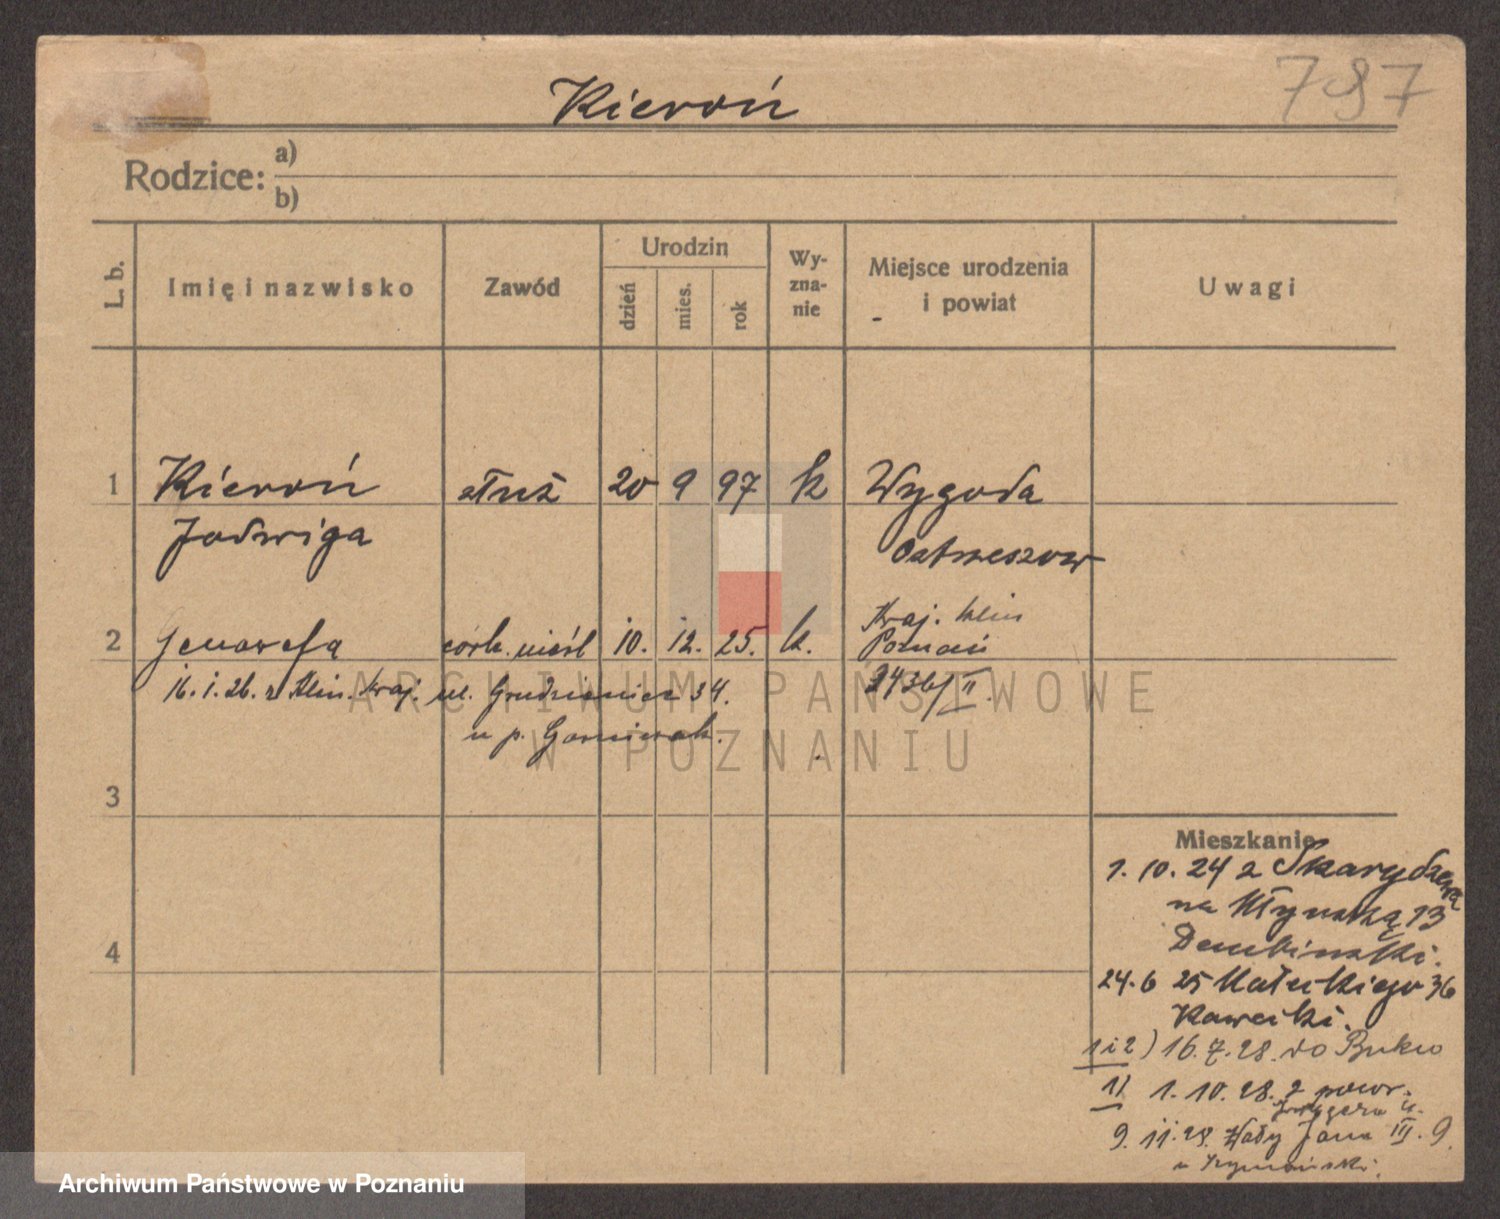 Kieroń
797
Rodzice: a)
b)
L. b.
Imię i nazwisko
Zawód
Urodzin
dzień
mies.
rok
Wy-
zna-
nie
Miejsce urodzenia
i powiat
Uwagi
1 Kieroń służ 20 9 97 k Wygoda
Jadwiga Ostrzeszow
Kraj. klin
2 Genowefa córk. nieśl 10. 12. 25. k. Poznań
16. 1. 26. z Klin. Kraj. ul. Grudzieniec 34. 2436/II.
u p.
3
4
Mieszkanie
1. 10. 24 z Skarydzewa
na Młyńską 13
Dembinski.
24. 6 25 Małeckiego 36
Kawecki.
1 i 2) 16. 7. 28. do Buku
1) 1. 10. 28. z powr.
9. 11. 28. Wały Jana III. 9.
u Szymański.
ARCHIWUM PAŃSTWOWE
W POZNANIU
Archiwum Państwowe w Poznaniu